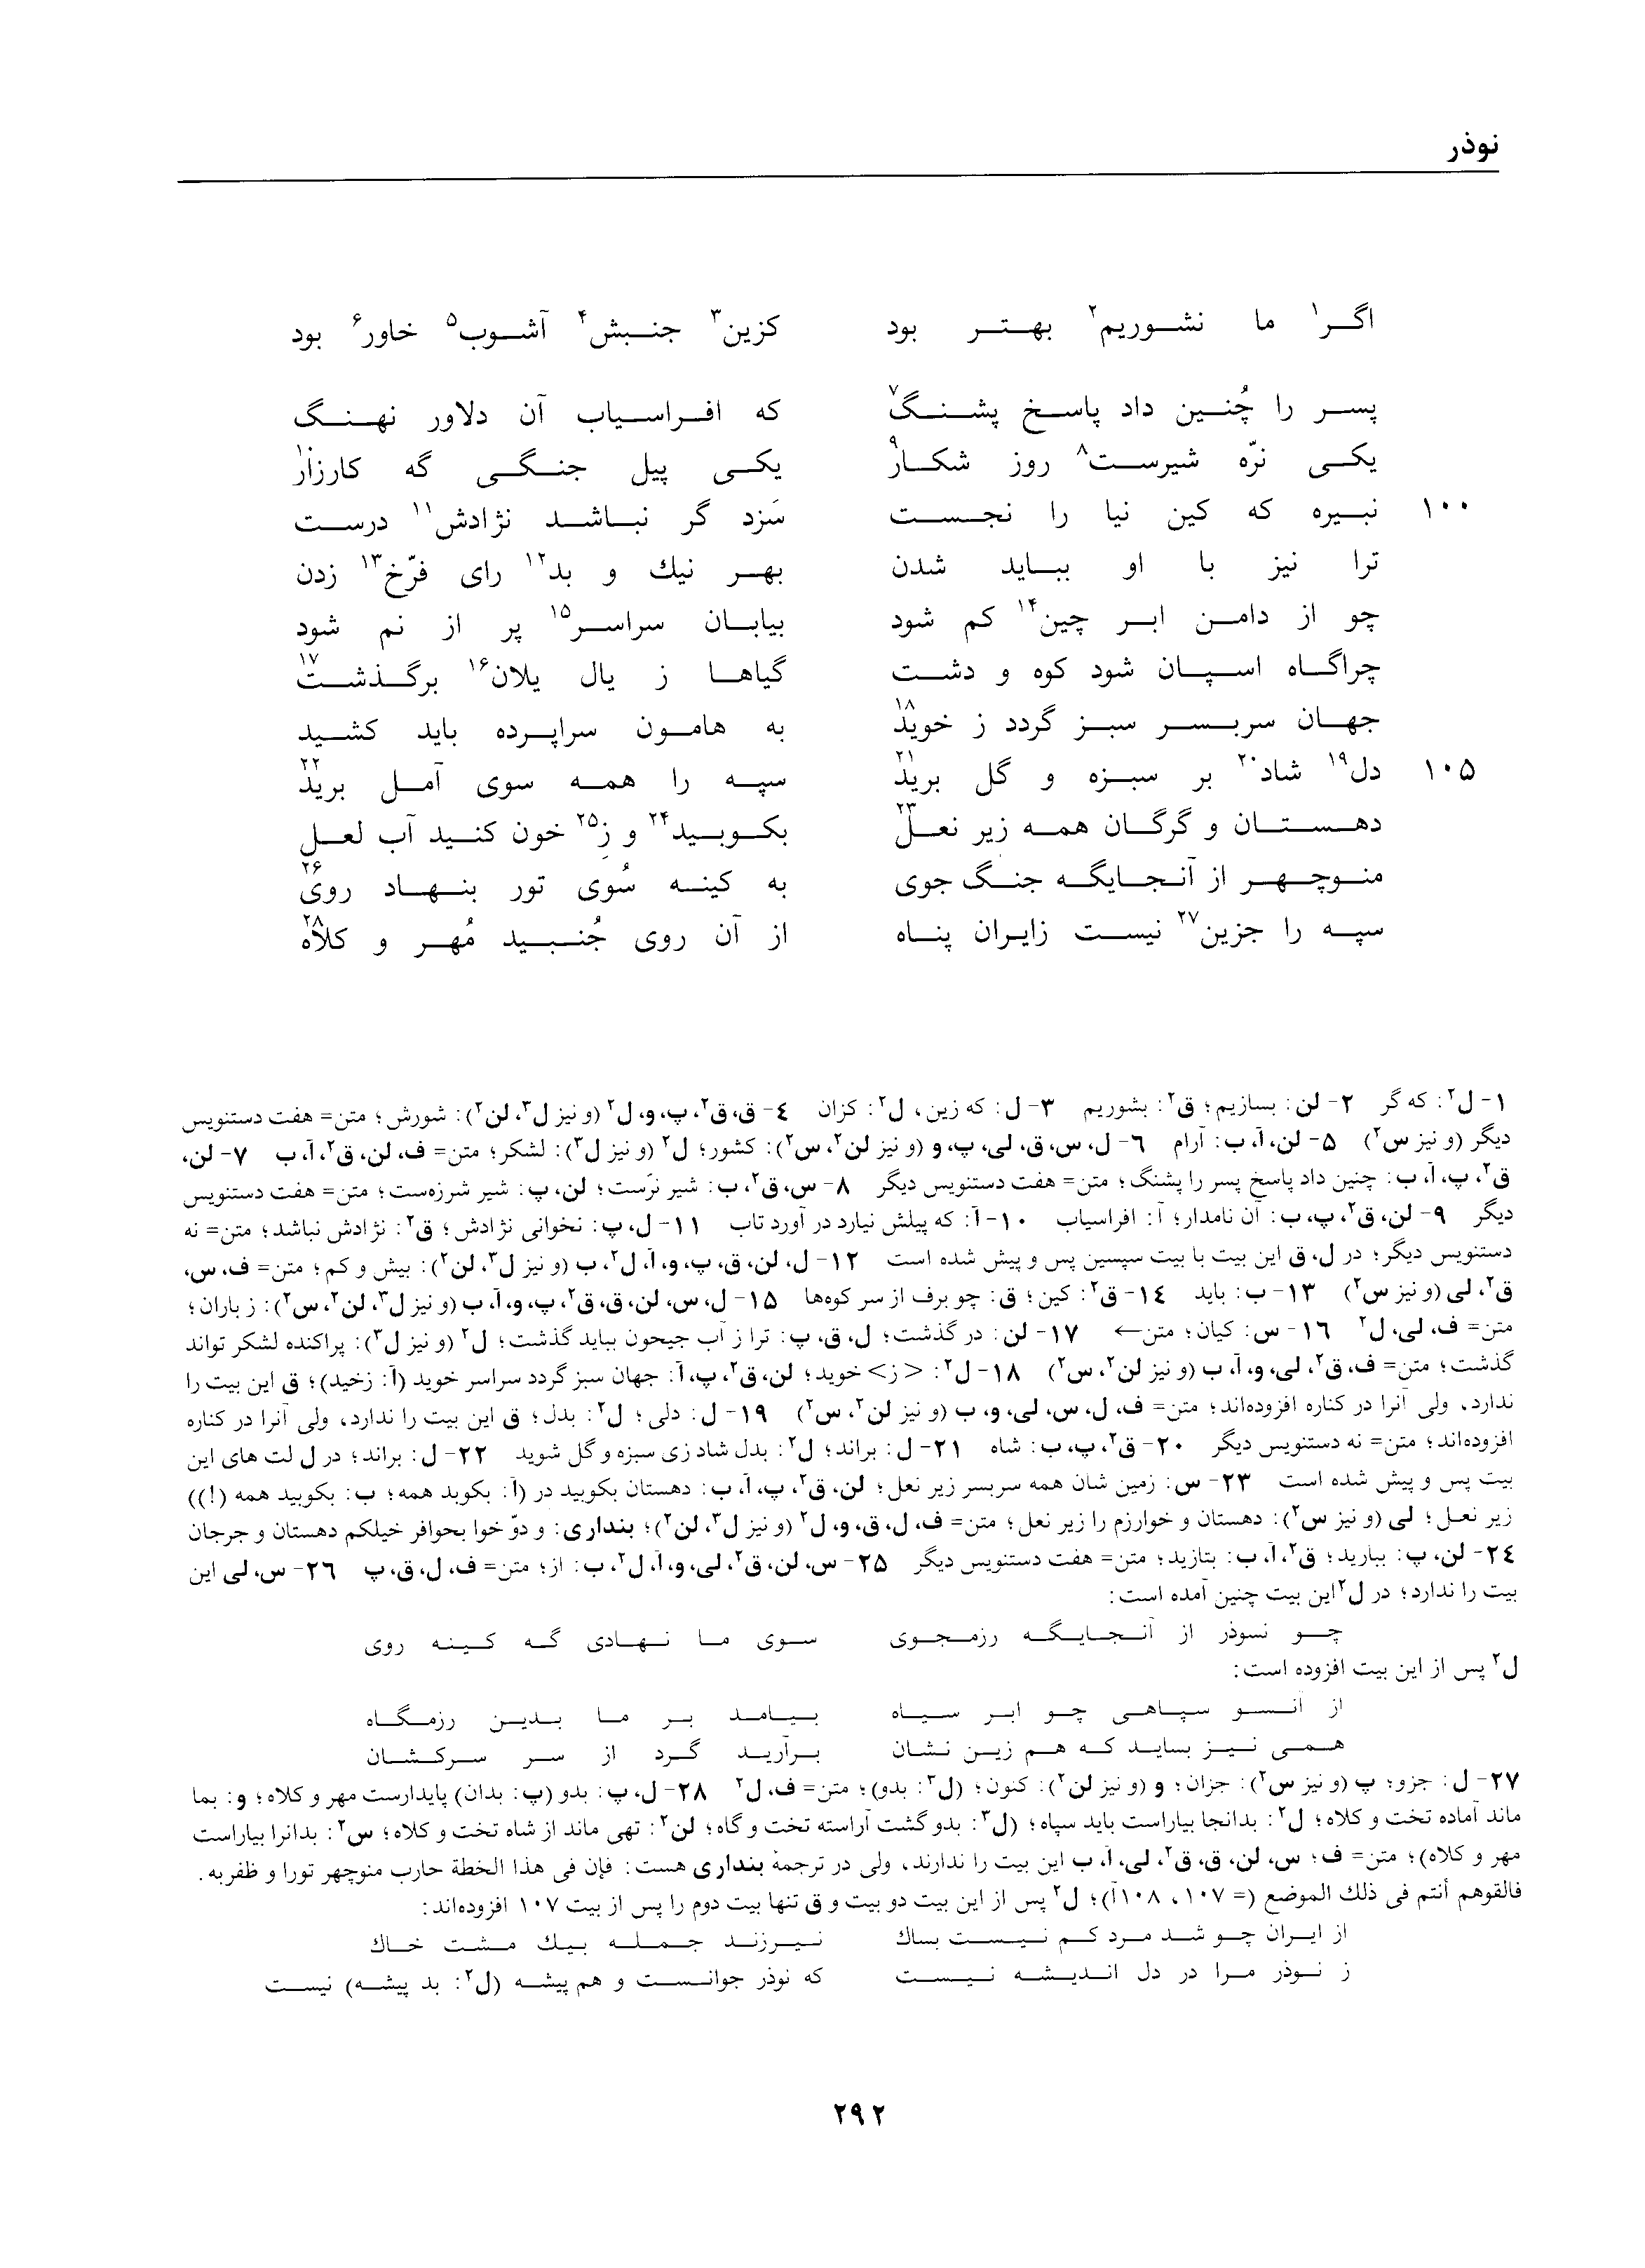 نوذر
اگر۱ ما نشوریم۲ بهتر بود کزین۳ جنبش۴ آشوب۵ خاور۶ بود
پسر را چُنین داد پاسخ پشنگ۷ که افراسیاب آن دلاور نهنگ
یکی نرّه شیرست۸ روز شکار۹ یکی پیل جنگی گه کارزار۱۰
۱۰۰ نبیره که کین نیا را نجست سَزد گر نباشد نژادش۱۱ درست
ترا نیز با او بباید شدن بهر نیك و بد۱۲ رای فرّخ۱۳ زدن
چو از دامن ابر چین۱۴ کم شود بیابان سراسر۱۵ پر از نم شود
چراگاه اسپان شود کوه و دشت گیاها ز یال یلان۱۶ برگذشت۱۷
جهان سربسر سبز گردد ز خوید۱۸ به هامون سراپرده باید کشید
۱۰۵ دل۱۹ شاد۲۰ بر سبزه و گل برید۲۱ سپه را همه سوی آمل برید۲۲
دهستان و گرگان همه زیر نعل۲۳ بکوبید۲۴ و ز۲۵ خون کنید آب لعل
منوچهر از آنجایگه جنگ جوی به کینه سُوی تور بنهاد روی۲۶
سپه را جزین۲۷ نیست زایران پناه از آن روی جُنبید مُهر و کلاه۲۸
۱- ل۲: که گر ۲- لن: بسازیم؛ ق۲: بشوریم ۳- ل: که زین، ل۲: کزان ۴- ق، ق۲، پ، و، ل۲ (و نیز ل۳، لن۲): شورش؛ متن= هفت دستنویس
دیگر (و نیز س۲) ۵- لن، آ، ب: آرام ۶- ل، س، ق، لی، پ، و (و نیز لن۲، س۲): کشور؛ ل۲ (و نیز ل۳): لشکر؛ متن= ف، لن، ق۲، آ، ب ۷- لن،
ق۲، پ، آ، ب: چنین داد پاسخ پسر را پشنگ؛ متن= هفت دستنویس دیگر ۸- س، ق۲، ب: شیر نرّست؛ لن، پ: شیر شرزه‌ست؛ متن= هفت دستنویس
دیگر ۹- لن، ق۲، پ، ب: آن نامدار؛ آ: افراسیاب ۱۰- آ: که پیلش نیارد در آورد تاب ۱۱- ل، پ: نخوانی نژادش؛ ق۲: نژادش نباشد؛ متن= نه
دستنویس دیگر؛ در ل، ق این بیت با بیت سپسین پس و پیش شده است ۱۲- ل، لن، ق، پ، و، آ، ل۲، ب (و نیز ل۳، لن۲): بیش و کم؛ متن= ف، س،
ق۲، لی (و نیز س۲) ۱۳- ب: باید ۱۴- ق۲: کین؛ ق: چو برف از سر کوه‌ها ۱۵- ل، س، لن، ق، ق۲، پ، و، آ، ب (و نیز ل۳، لن۲، س۲): ز باران؛
متن= ف، لی، ل۲ ۱۶- س: کیان؛ متن← ۱۷- لن: در گذشت؛ ل، ق، پ: ترا ز آب جیحون بباید گذشت؛ ل۲ (و نیز ل۳): پراکنده لشکر تواند
گذشت؛ متن= ف، ق۲، لی، و، آ، ب (و نیز لن۲، س۲) ۱۸- ل۲: <ز> خوید؛ لن، ق۲، پ، آ: جهان سبز گردد سراسر خوید (آ: زخید)؛ ق این بیت را
ندارد، ولی آنرا در کناره افزوده‌اند؛ متن= ف، ل، س، لی، و، ب (و نیز لن۲، س۲) ۱۹- ل: دلی؛ ل۲: بدل؛ ق این بیت را ندارد، ولی آنرا در کناره
افزوده‌اند؛ متن= نه دستنویس دیگر ۲۰- ق۲، پ، ب: شاه ۲۱- ل: براند؛ ل۲: بدل شاد زی سبزه و گل شوید ۲۲- ل: براند؛ در ل لت های این
بیت پس و پیش شده است ۲۳- س: زمین شان همه سربسر زیر نعل؛ لن، ق۲، پ، آ، ب: دهستان بکوبید در (آ: بکوبد همه؛ ب: بکوبید همه (!))
زیر نعل؛ لی (و نیز س۲): دهستان و خوارزم را زیر نعل؛ متن= ف، ل، ق، و، ل۲ (و نیز ل۳، لن۲)؛ بنداری: و دوّخوا بحوافر خیلکم دهستان و جرجان
۲۴- لن، پ: ببارید؛ ق۲، آ، ب: بتازید؛ متن= هفت دستنویس دیگر ۲۵- س، لن، ق۲، لی، و، آ، ل۲، ب: از؛ متن= ف، ل، ق، پ ۲۶- س، لی این
بیت را ندارد؛ در ل۲ این بیت چنین آمده است:
چو نوذر از آنجایگه رزمجوی سوی ما نهادی گه کینه روی
ل۲ پس از این بیت افزوده است:
از انسو سپاهی چو ابر سیاه بیامد بر ما بدین رزمگاه
همی نیز بساید که هم زین نشان برآرید گرد از سر سرکشان
۲۷- ل: جزو؛ پ (و نیز س۲): جزان؛ و (و نیز لن۲): کنون؛ (ل۳: بدو)؛ متن= ف، ل۲ ۲۸- ل، پ: بدو (پ: بدان) پایدارست مهر و کلاه؛ و: بما
ماند آماده تخت و کلاه؛ ل۲: بدانجا بیاراست باید سپاه؛ (ل۳: بدو گشت آراسته تخت و گاه؛ لن۲: تهی ماند از شاه تخت و کلاه؛ س۲: بدانرا بیاراست
مهر و کلاه)؛ متن= ف؛ س، لن، ق، ق۲، لی، آ، ب این بیت را ندارند، ولی در ترجمهٔ بنداری هست: فإن فی هذا الخطة حارب منوچهر تورا و ظفربه.
فالقوهم أنتم فی ذلك الموضع (= ۱۰۷، ۱۰۸آ)؛ ل۲ پس از این بیت دو بیت و ق تنها بیت دوم را پس از بیت ۱۰۷ افزوده‌اند:
از ایران چو شد مرد کم نیست باك نیرزند جمله بیك مشت خاك
ز نوذر مرا در دل اندیشه نیست که نوذر جوانست و هم پیشه (ل۲: بد پیشه) نیست
۲۹۲